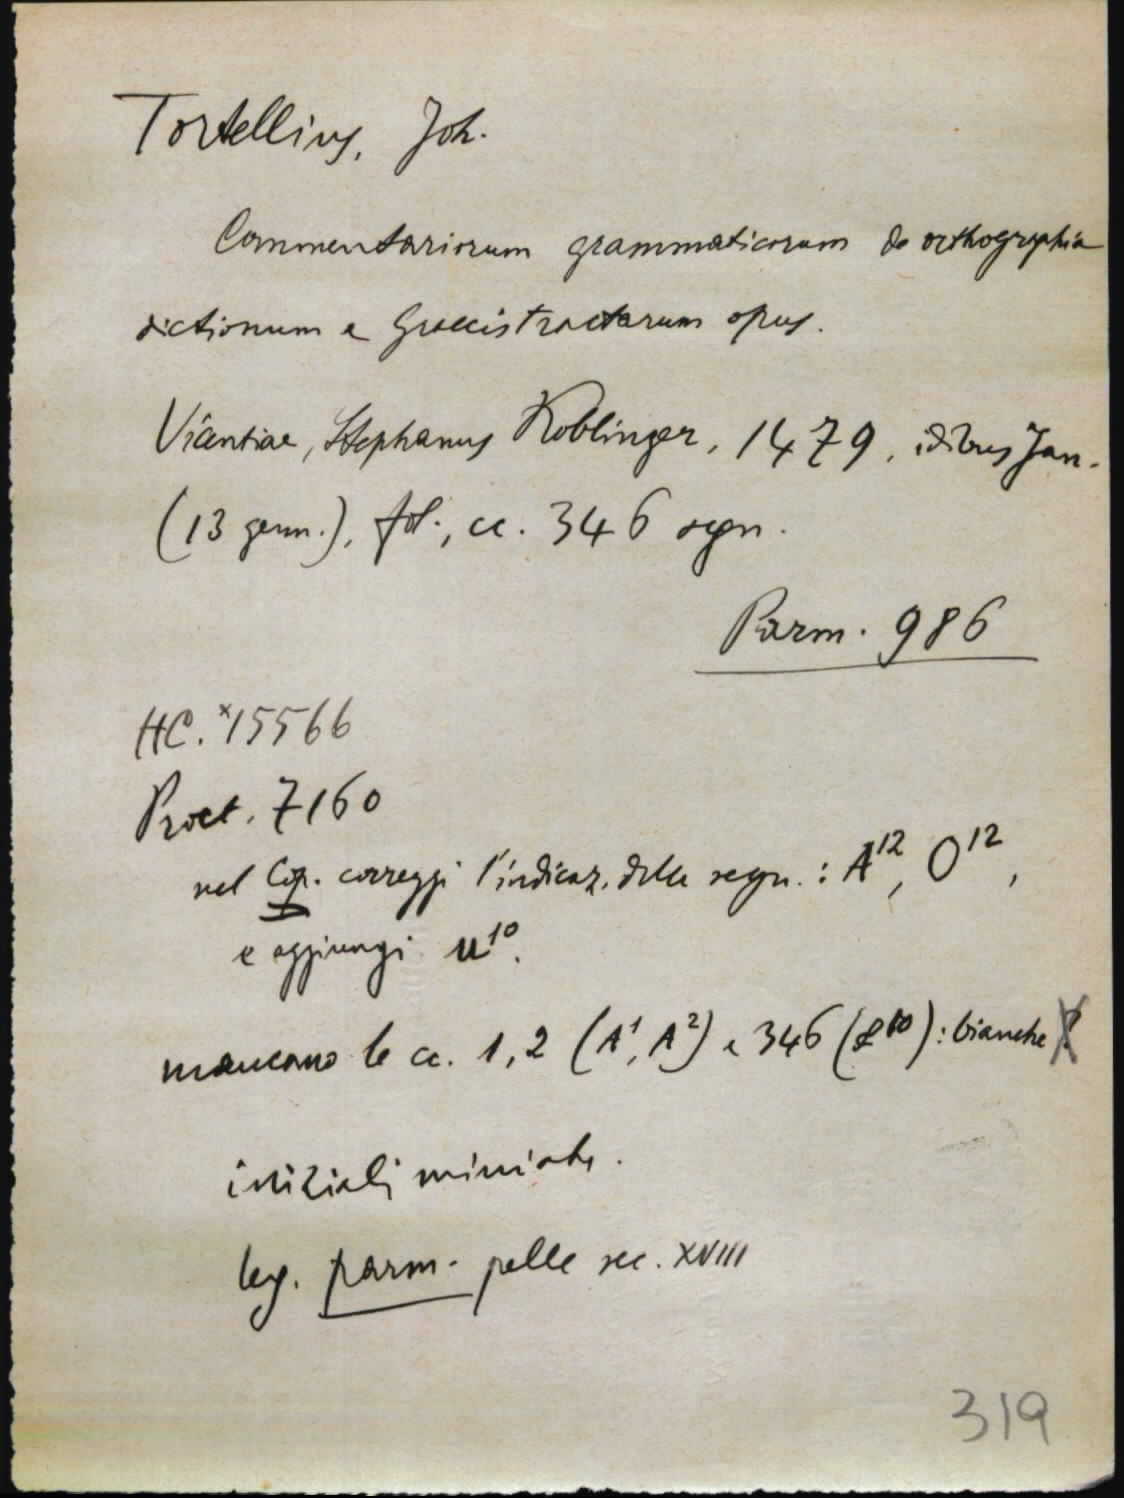 Tortellius, Joh.
Commentariorum grammaticorum de orthographia
dictionum e Graecis tractarum opus.
Vicentiae, Stephanus Koblinger, 1479, idibus Jan.
(13 genn.), fol., cc. 346 segn.
Parm. 986
HC. *15566
Proct. 7160
nel Cop. correggi l'indicaz. della segn.: A¹², O¹²,
e aggiungi u¹⁰.
mancano le cc. 1, 2 (A¹, A²) e 346 (¹⁰): bianche
iniziali miniate.
leg. parm. pelle sec. XVIII
319